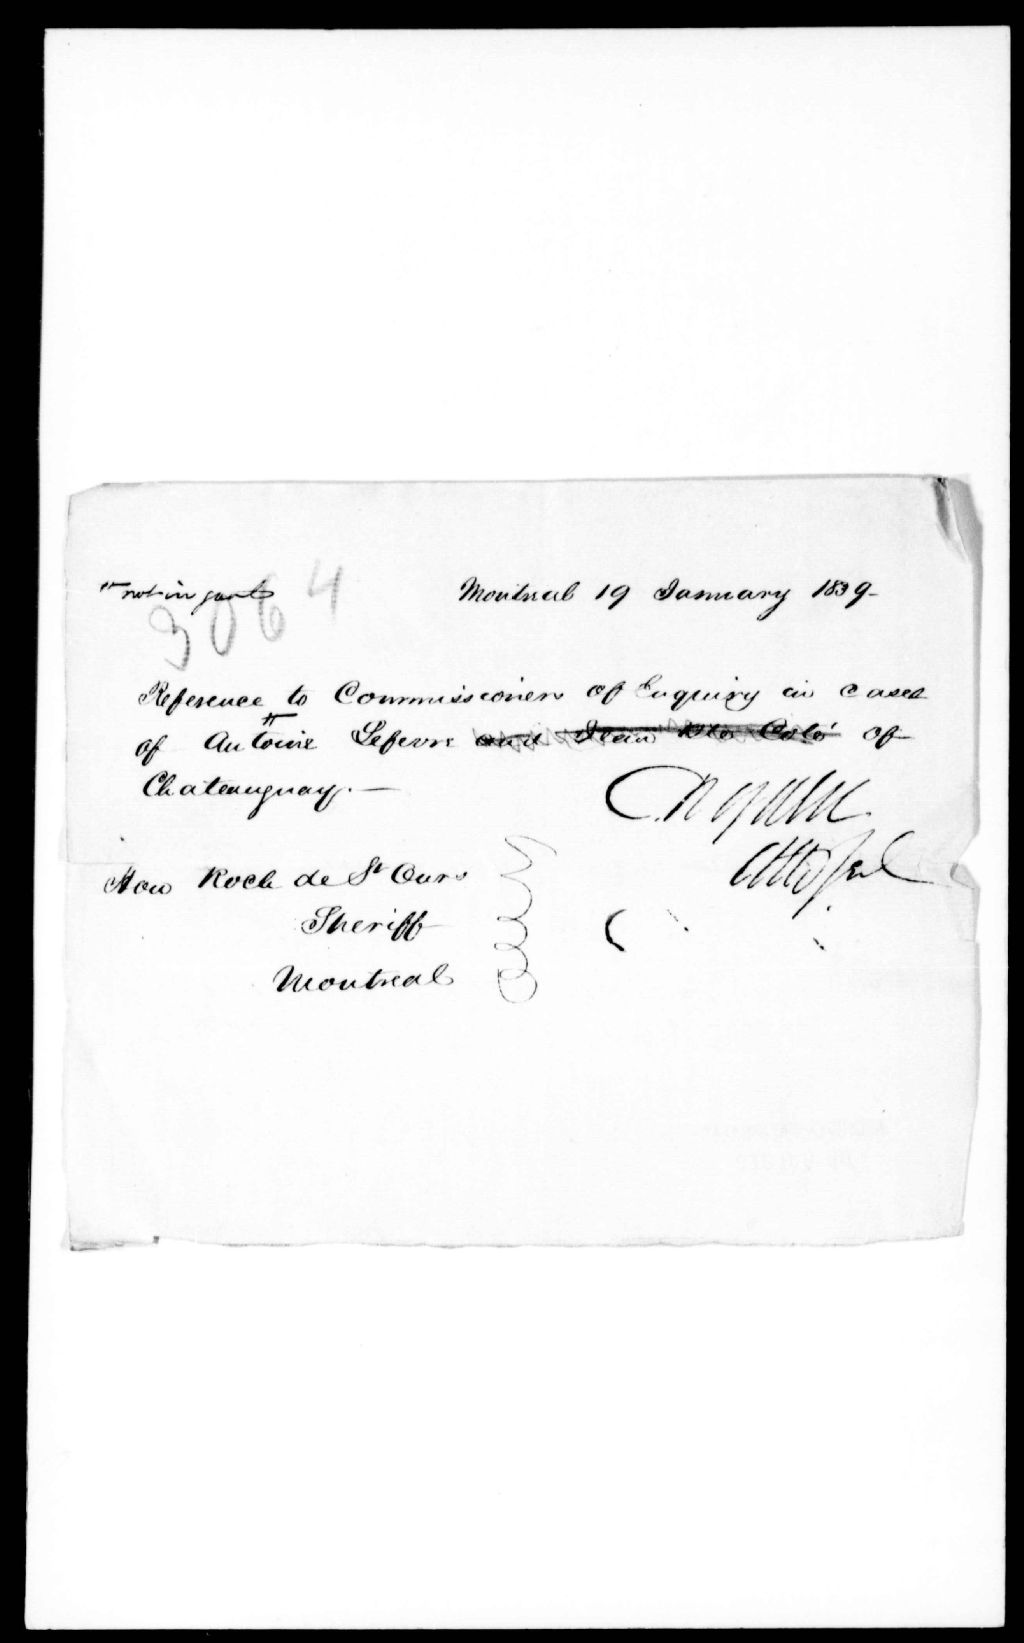 " not in gaol
Montreal 19 January 1839-
3064
Reference to Commissioners of Enquiry in cases
of Antoine " Lefevre and Jean Bte Coté of
Chateauguay. —
C. R. Ogden
Att. Genl
Hon Roch de St Ours
Sheriff
Montreal